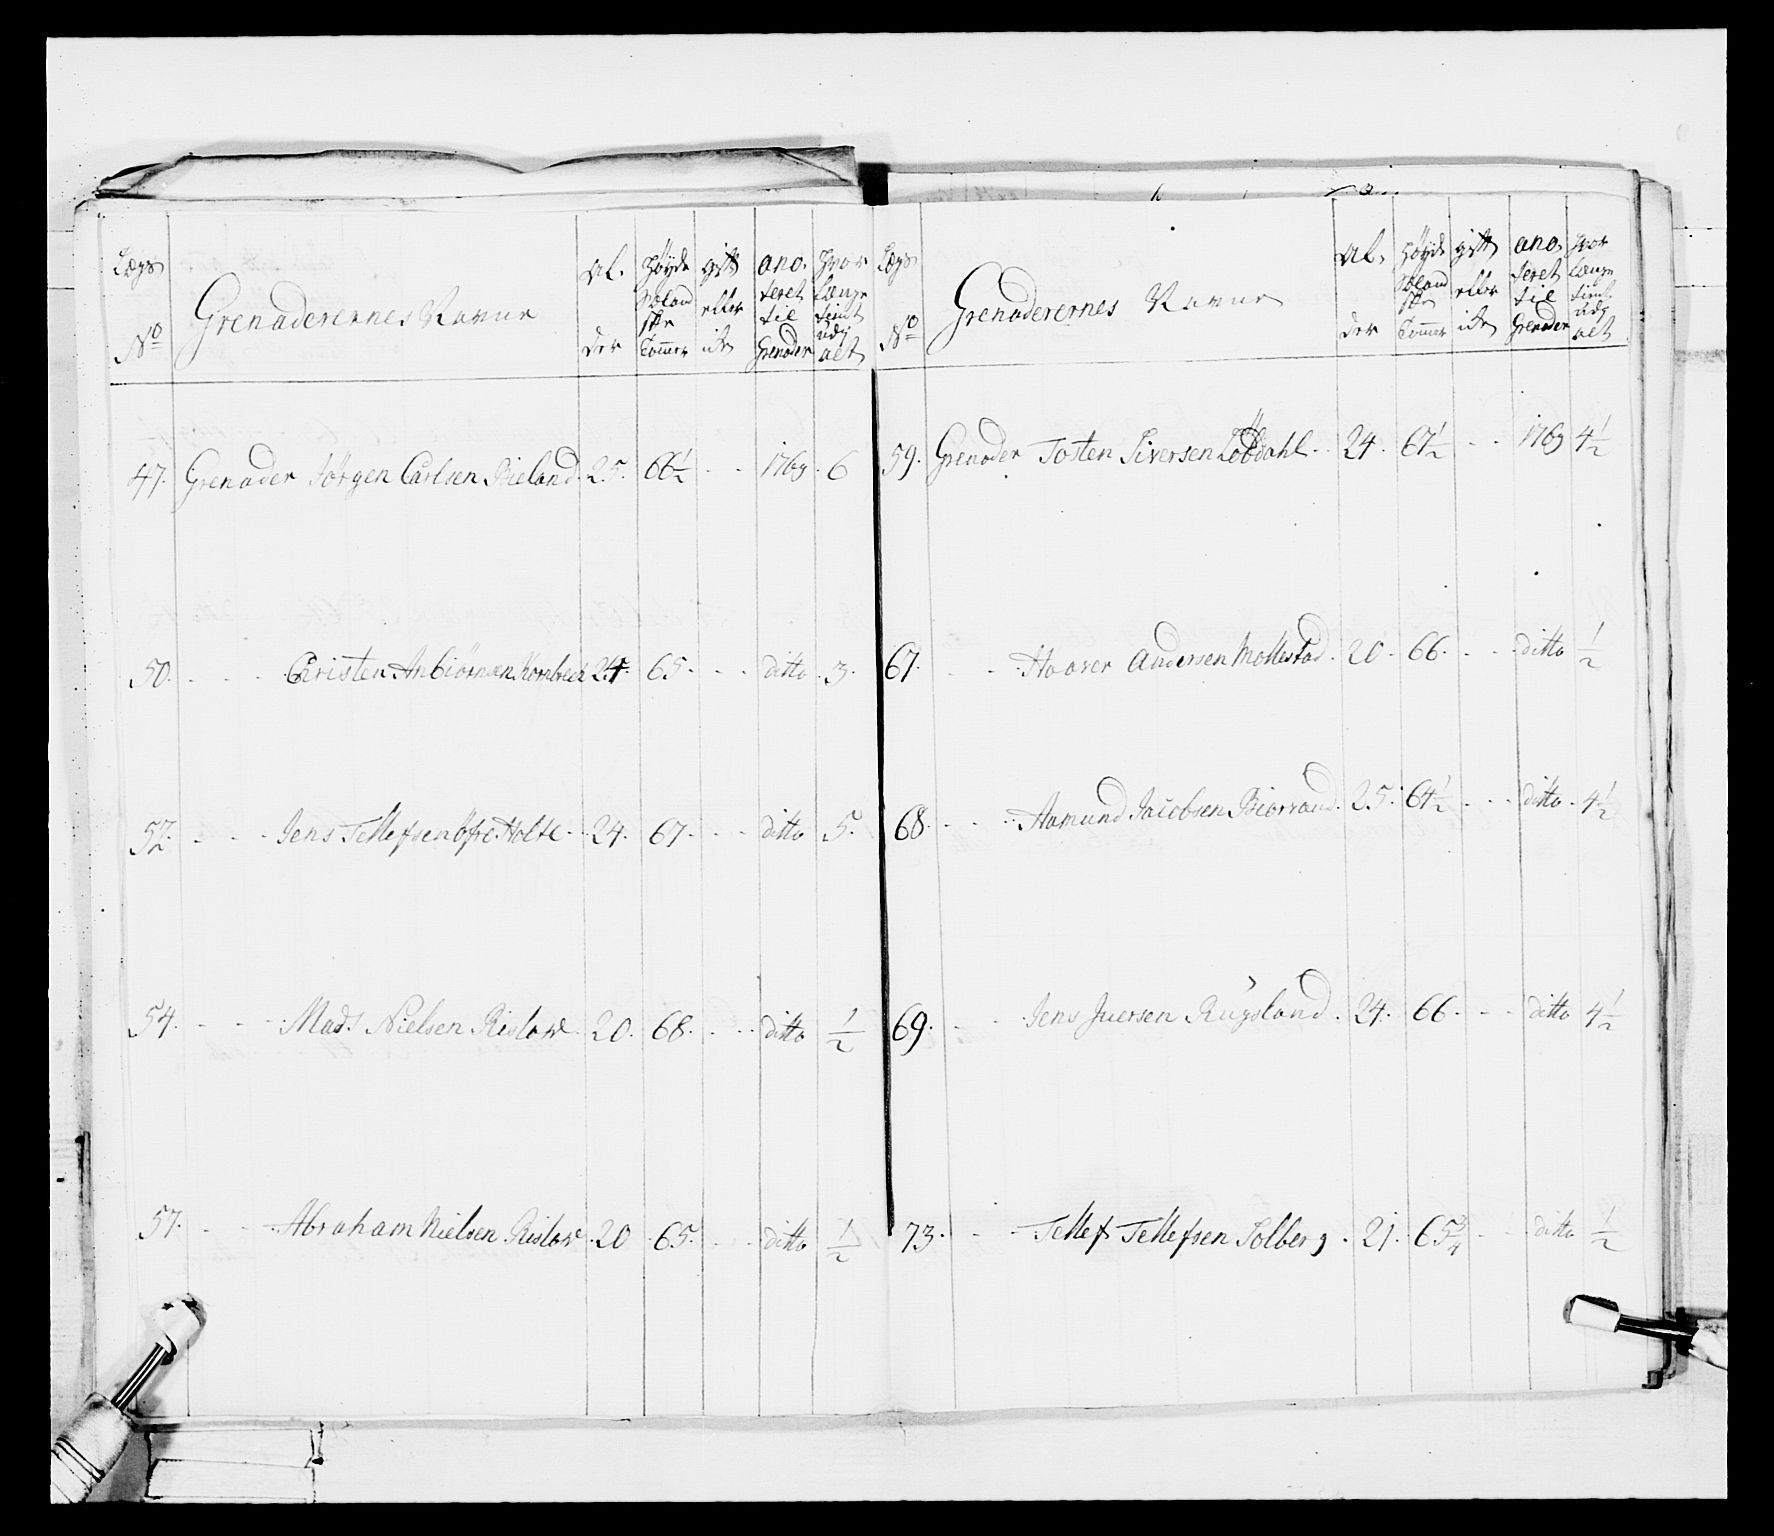 Lægs No Grenaderernes Navne Alder Høyde Sælandske Tommer gift eller ikke anoteret til Grenader Hvor længe tient udj alt
47. Grenader Jørgen Carlsen Bieland. 25. 66 1/2 - - 1769. 6
50. - - - Christen Anbiørnsen 24. 65 - - ditto. 3.
52. - - - Jens Tellefsen Øfre Holte. 24. 67. - - ditto 5.
54. - - - Mads Nielsen Rislaw. 20. 68. - - ditto 1/2
57. - - - Abraham Nielsen Rislaw. 20 65. - - ditto 1/2
Lægs No Grenaderernes Navne Alder Høyde Sælandske Tommer gift eller ikke anoteret til Grenader Hvor længe tient udj alt
59. Grenader Tosten Siversen Løbdahl. 24. 67 1/2 - - 1769 4 1/2
67. - - Haaver Andersen Mollestad. 20. 66. - - ditto 1/2
68. - - Aamund Jacobsen 25. 64 1/2 - - ditto. 4 1/2
69. - - Jens Juersen Rugsland. 24. 66. - - ditto 4 1/2
73. - - Tellef Tellefsen Solberg. 21. 65 3/4 - - ditto 1/2